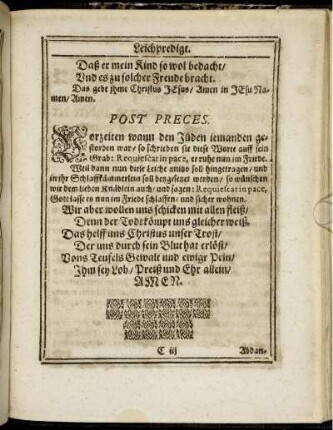 Leichpredigt.
Daß er mein Kind so wol bedacht/
Vnd es zu solcher Freude bracht.
Das gebe jhme Christus JEsus/ Amen in JEsu Na-
men/ Amen.
POST PRECES.
Vorzeiten wann den Jüden jemanden ge-
storben war/ so schrieben sie diese Worte auff sein
Grab: Requiescat in pace, er ruhe nun im Friede.
Weil dann nun diese Leiche anitzo soll hingetragen/ und
in jhr Schlaffkämmerlein soll beygesetzet werden/ so wünschen
wir dem lieben Knäblein auch/ und sagen: Requiescat in pace,
Gott lasse es nun im Friede schlaffen/ und sicher wohnen.
Wir aber wollen uns schicken mit allen fleiß/
Denn der Todt kömpt uns gleicher weiß.
Das helff uns Christus unser Trost/
Der uns durch sein Blut hat erlöst/
Vons Teufels Gewalt und ewiger Pein/
Jhm sey Lob/ Preiß und Ehr allein/
AMEN.
C iij
Abdan-